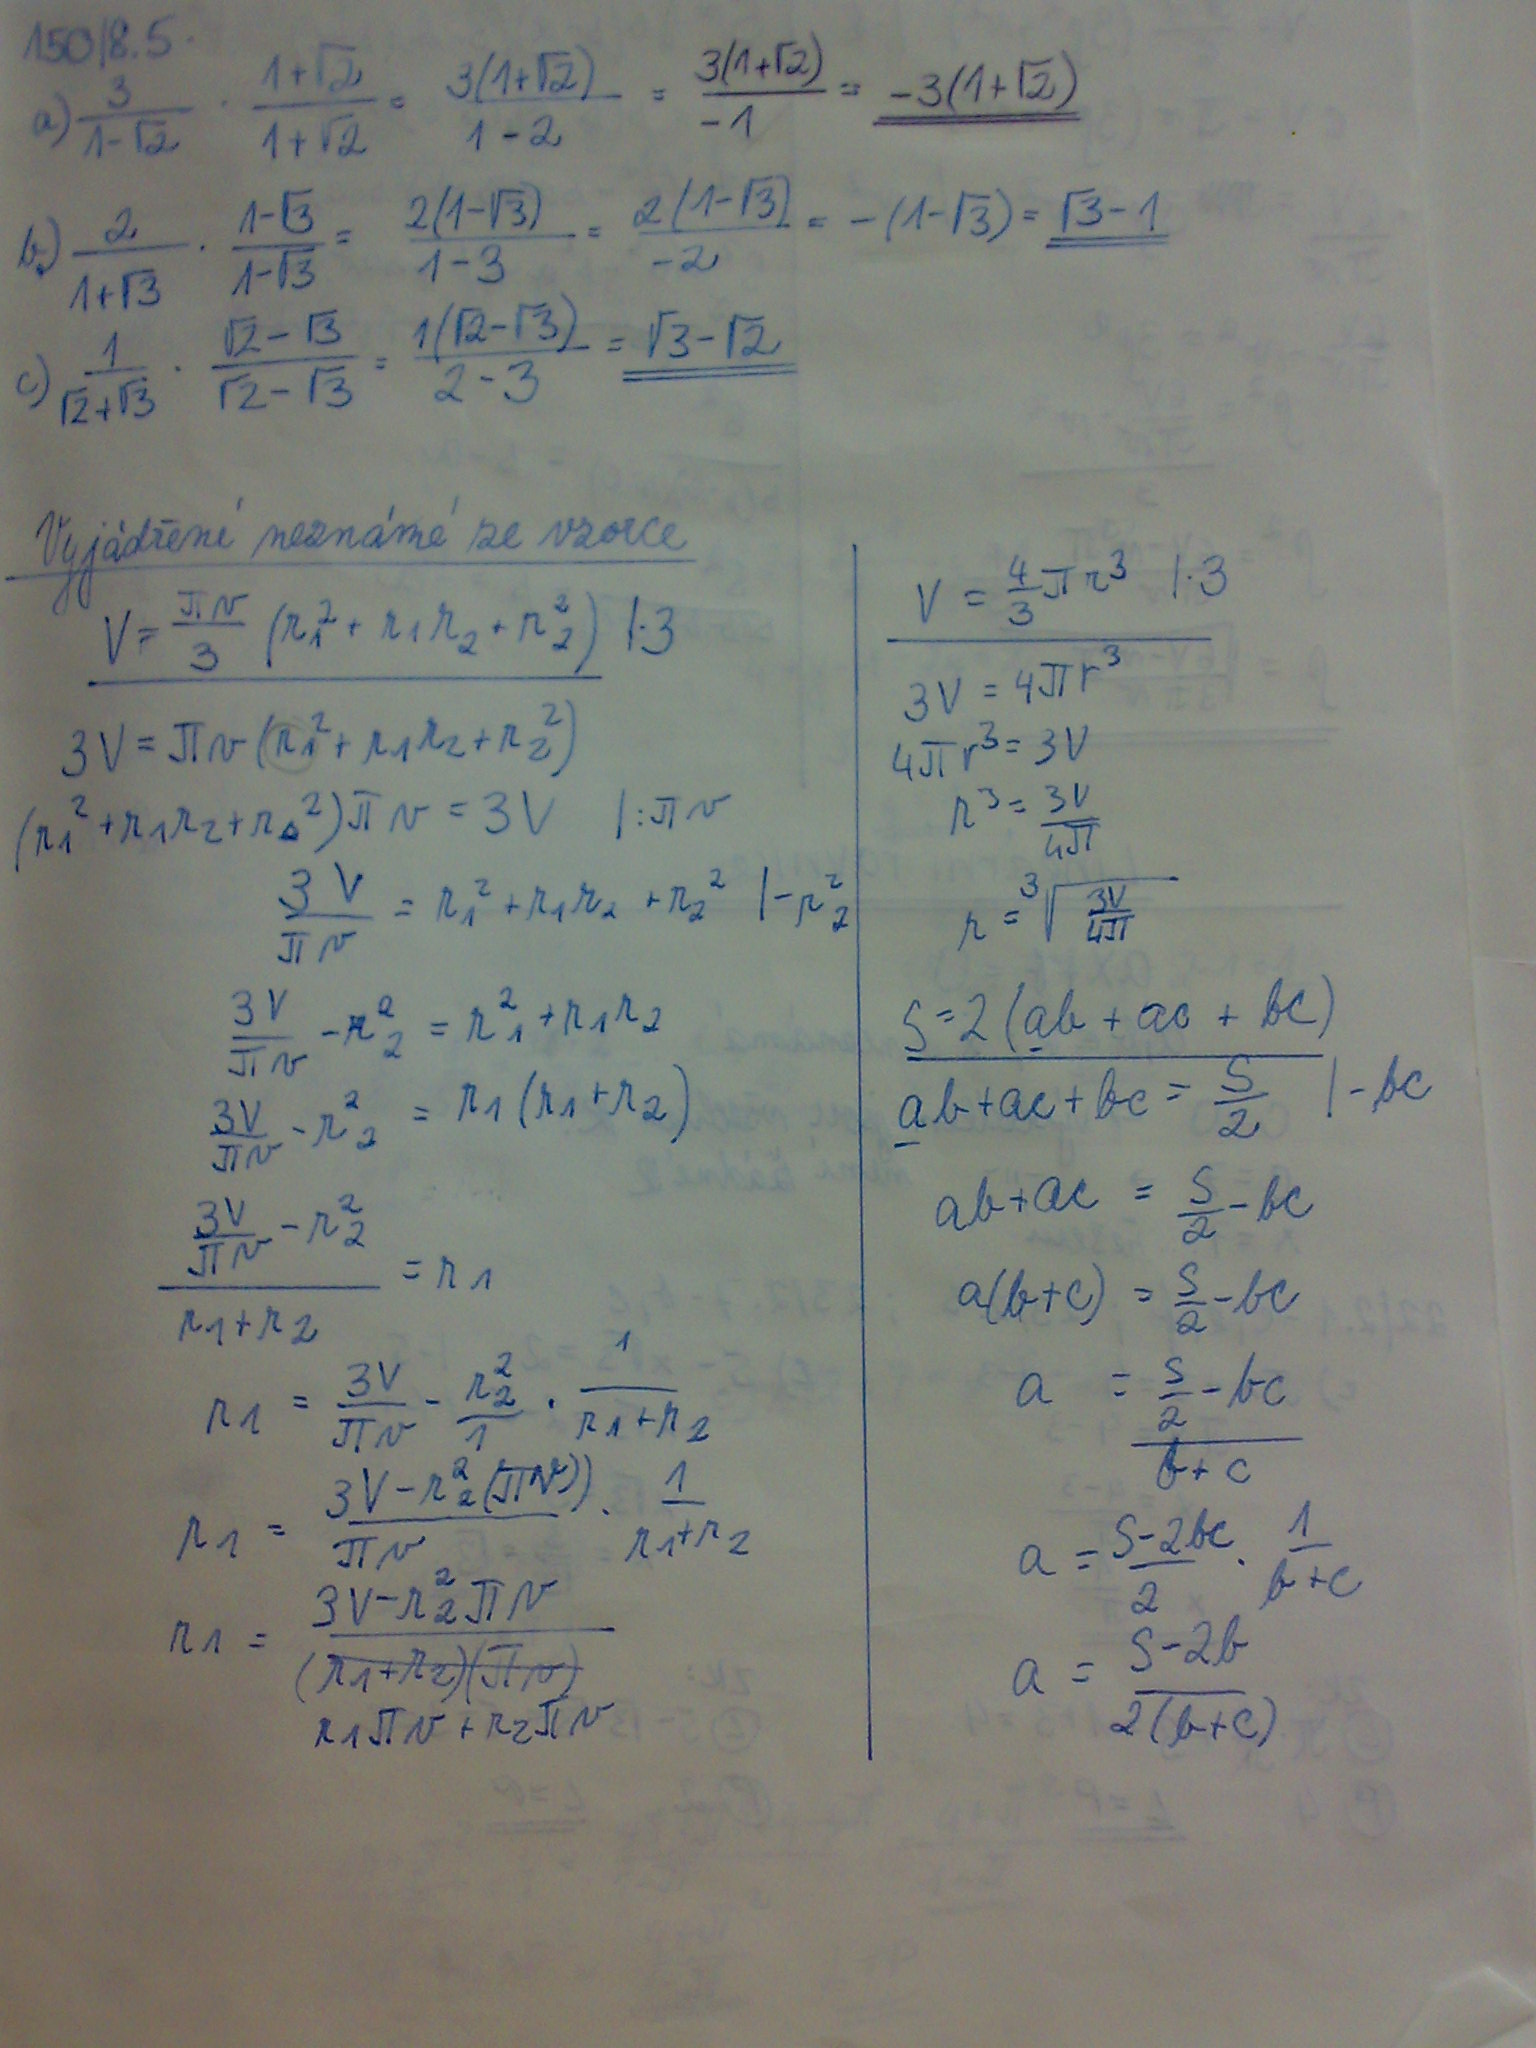 150/8.5.
a) 3/(1-√2) · (1+√2)/(1+√2) = 3(1+√2)/(1-2) = 3(1+√2)/-1 = -3(1+√2)
b) 2/(1+√3) · (1-√3)/(1-√3) = 2(1-√3)/(1-3) = 2(1-√3)/-2 = -(1-√3) = √3-1
c) 1/(√2+√3) · (√2-√3)/(√2-√3) = 1(√2-√3)/(2-3) = √3-√2
Vyjádření neznámé ze vzorce
V = πv/3 (r₁² + r₁r₂ + r₂²) |·3
3V = πv (r₁² + r₁r₂ + r₂²)
(r₁² + r₁r₂ + r₂²)πv = 3V |:πv
3V/πv = r₁² + r₁r₂ + r₂² |-r₂²
3V/πv - r₂² = r₁² + r₁r₂
3V/πv - r₂² = r₁(r₁+r₂)
(3V/πv - r₂²)/(r₁+r₂) = r₁
r₁ = 3V/πv - r₂²/1 · 1/(r₁+r₂)
r₁ = (3V-r₂²(πv))/πv · 1/(r₁+r₂)
r₁ = (3V-r₂²πv)/(r₁+r₂)(πv)
r₁πv + r₂πv
V = 4/3 πr³ |·3
3V = 4πr³
4πr³ = 3V
r³ = 3V/4π
r = ³√(3V/4π)
S = 2(ab + ac + bc)
ab+ac+bc = S/2 |-bc
ab+ac = S/2 - bc
a(b+c) = S/2 - bc
a = (S/2 - bc)/(b+c)
a = (S-2bc)/2 · 1/(b+c)
a = (S-2b)/2(b+c)